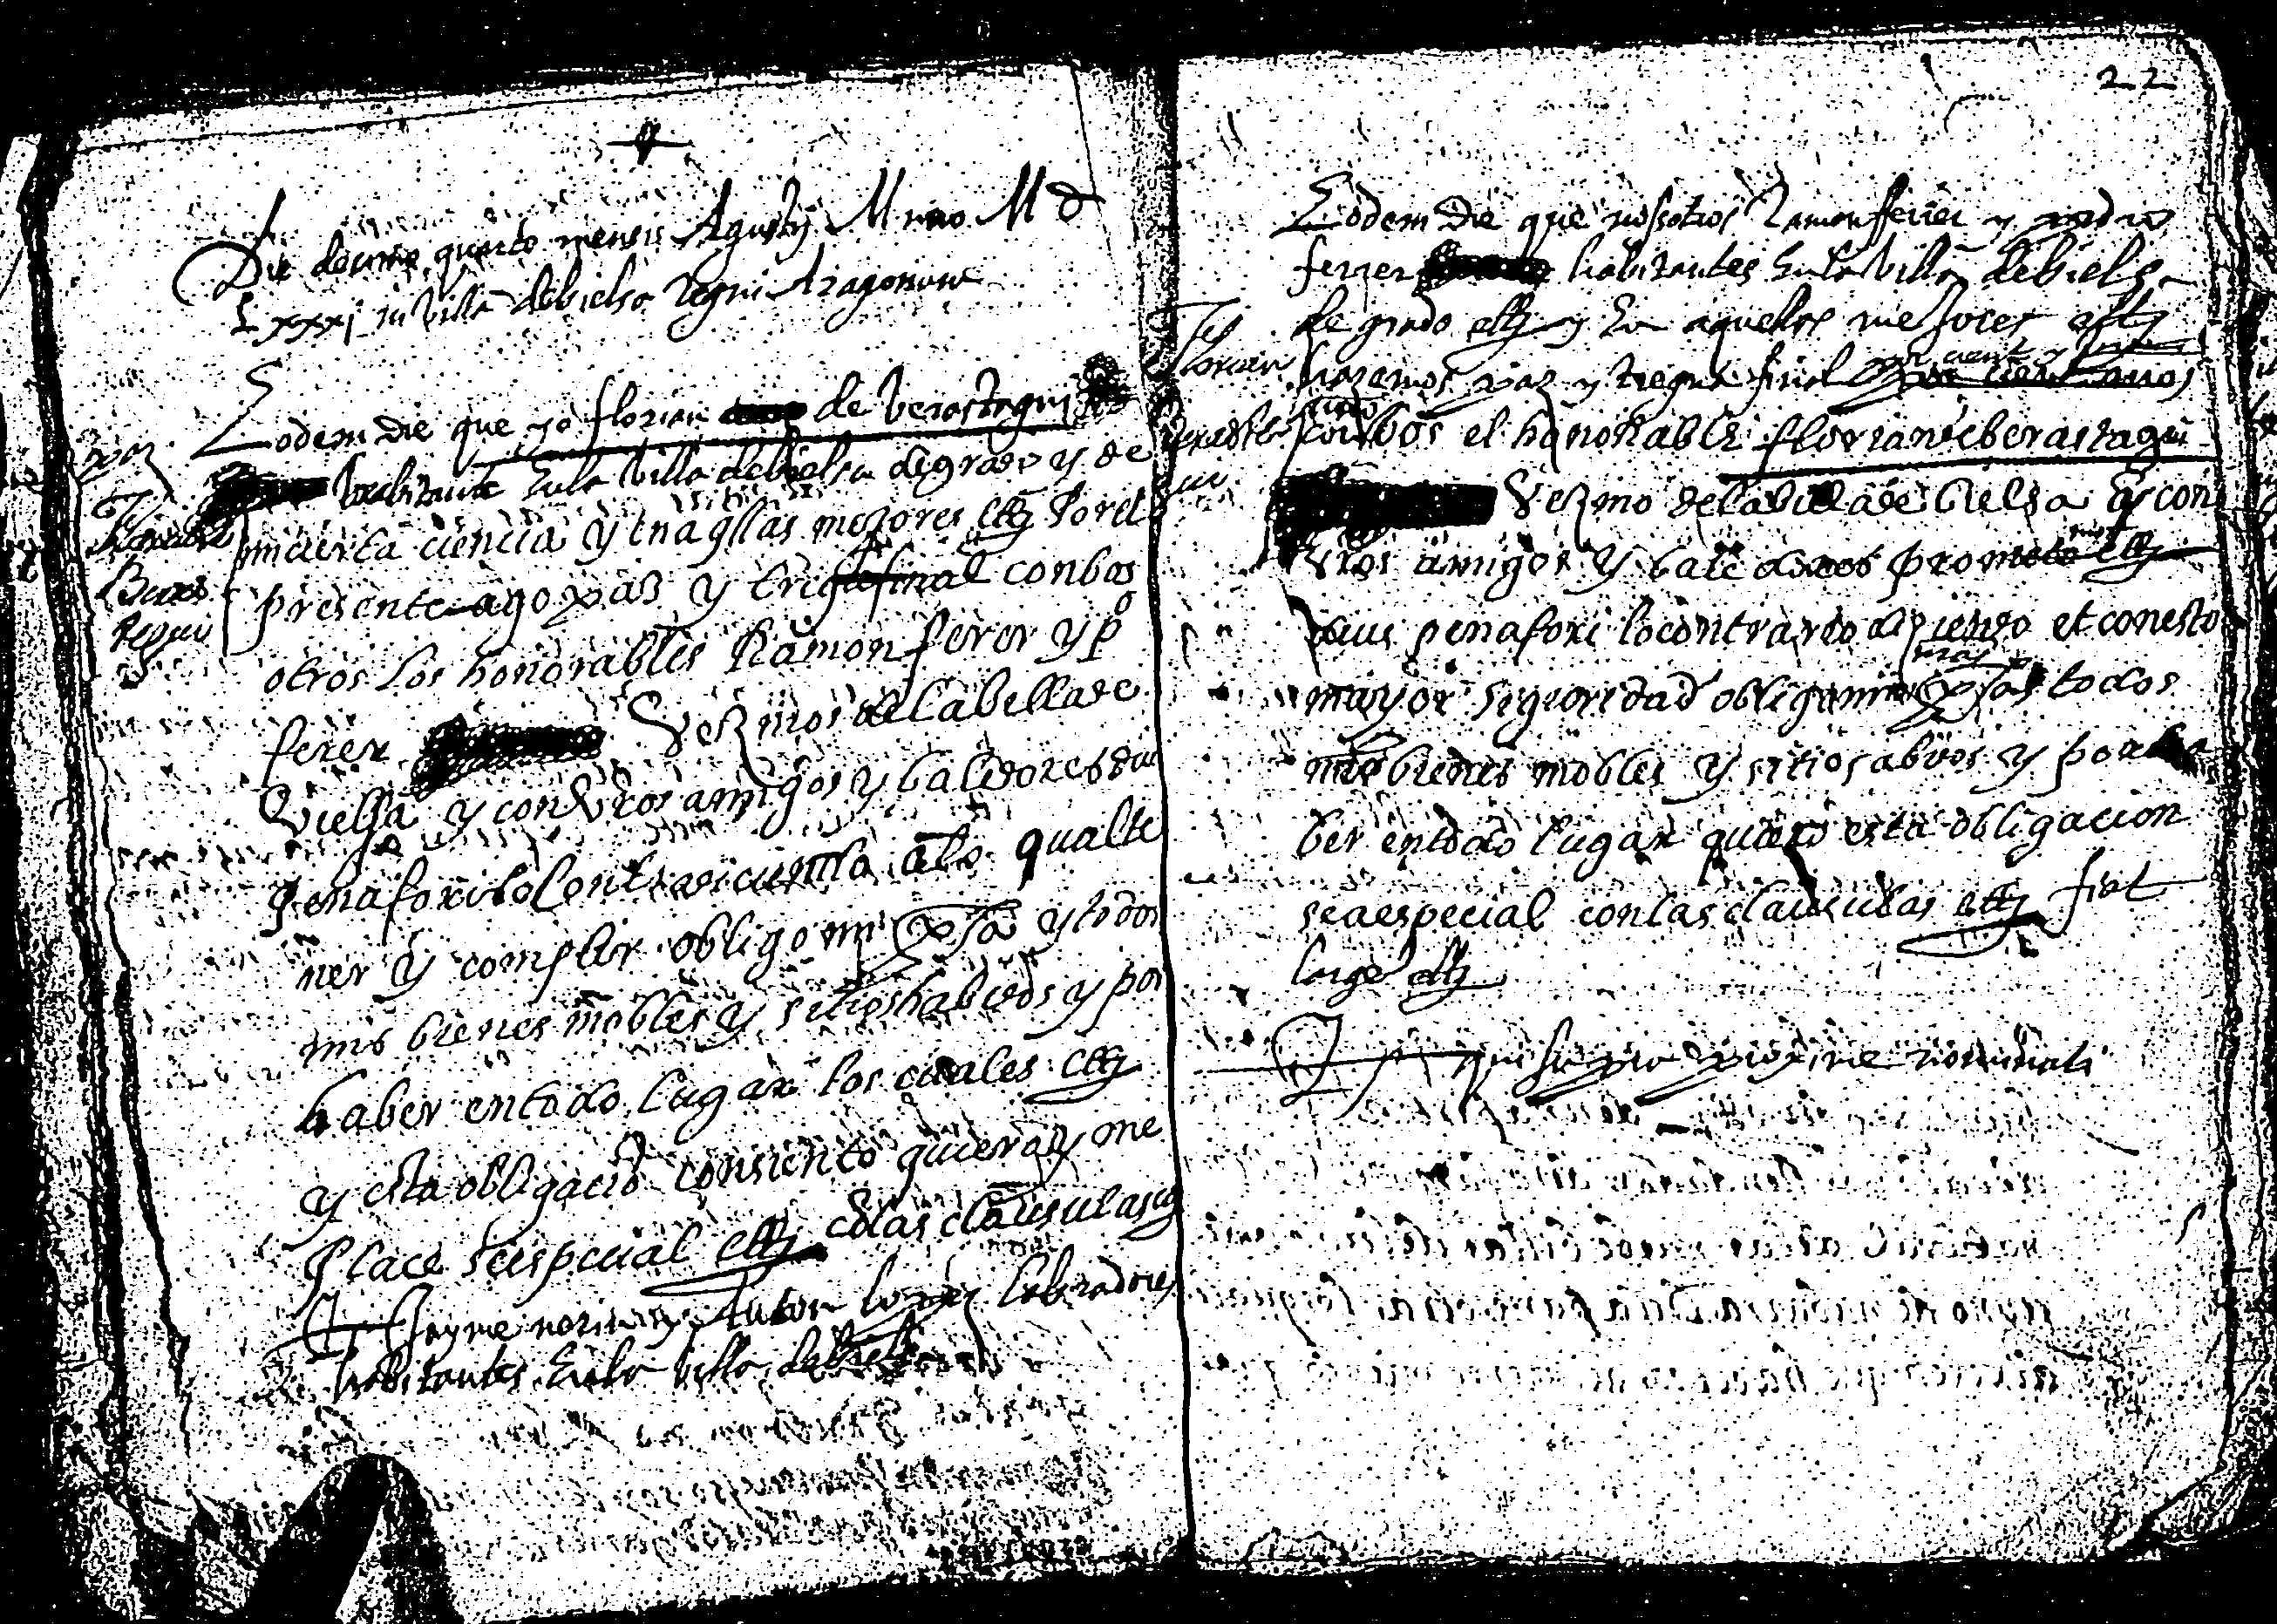 Die decimo quinto mensis Agusti Anno M D
Lxxxj in villa debielsa Regni Aragonum
Eodem die que yo florian de berastegui
habitante en la villa debielsa de grado y de
mi cierta ciencia y en aqllas mejores ettz Por el
presente ago paz y tregua final con bos
otros los honorables Ramon ferer y po
ferer Vezinos de la billa de
Vielsa y con vros amigos y baledores dius
pena fori lo contra
ner y complir obligo mi persa y todos
mis bienes mobles y sitios habidos y por
haber en todo lugar los cuales ettz
y esta obligacio consiento quiero y me
place sea especial ettz co las clausulas
Ts Jayme y Anton lopez labradores
habitantes en la villa de bielsa
paz
22
Eodem die que nosotros Ramon ferrer y pedro
ferrer habitantes en la villa debielsa
de grado ettz y en aquellas mejores ettz
hazemos paz y tregua final por cient y un
años
con bos el honorable florian de berastegui
Vezino de la billa de bielsa y con
vros amigos y baledores prometo ettz
dius pena fori lo contrario aziendo et con esto
mayor siguoridad obligamos nras persas todos
mis bienes mobles y sitios abios y por a
ber en todo lugar quiero esta obligacion
sea especial con las clausulas ettz fiat
large ettz
Ts qui supra proxime nominati